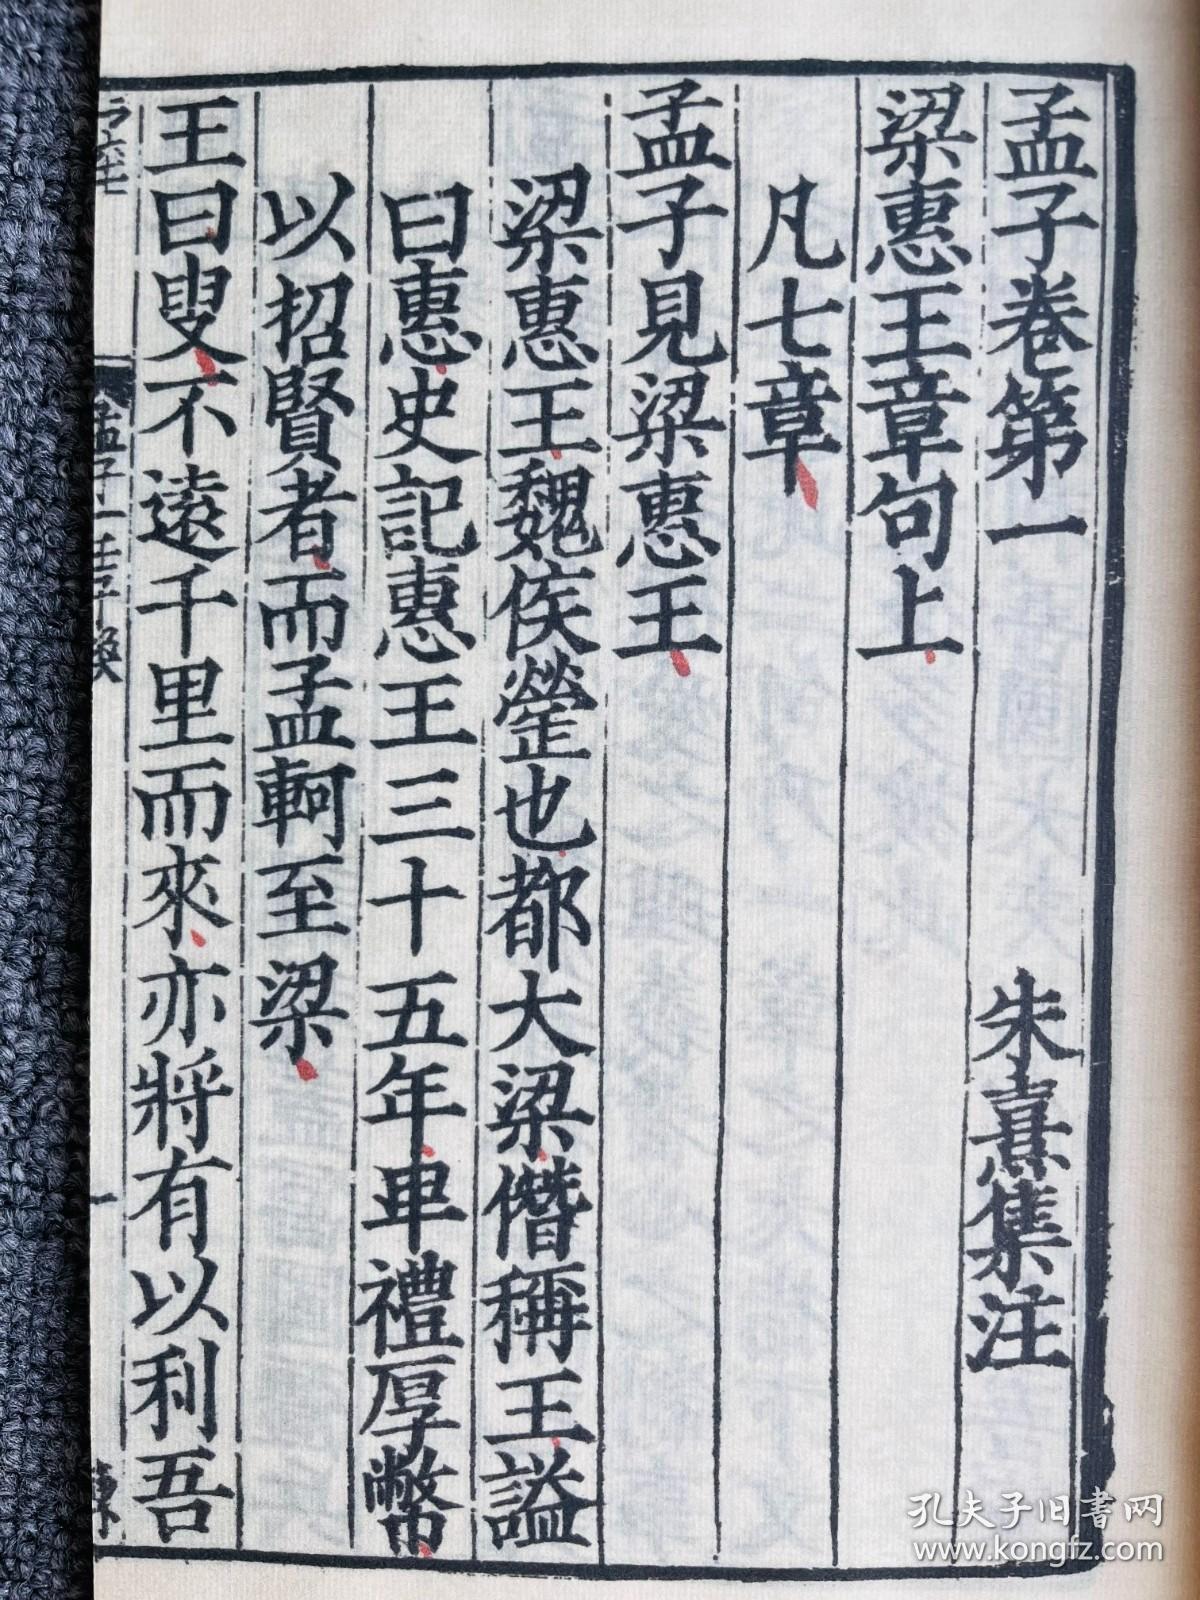 孟子卷第一　朱熹集注
梁惠王章句上
凡七章
孟子見梁惠王
梁惠王魏侯罃也都大梁僣稱王謚
曰惠史記惠王三十五年卑禮厚幣
以招賢者而孟軻至梁
王曰叟不遠千里而來亦將有以利吾
孔夫子旧书网
www.kongfz.com